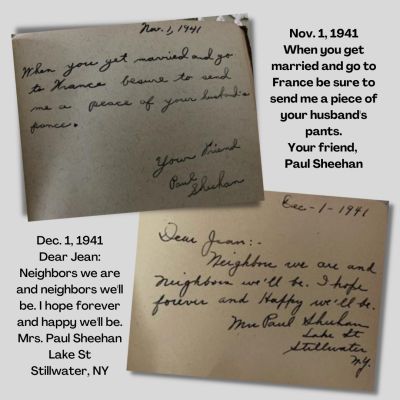 Nov. 1, 1941
When you get married and go
to France besure to send
me a peace of your husband's
pance.
Your Friend
Paul
Sheehan
Nov. 1, 1941
When you get
married and go to
France be sure to
send me a piece of
your husband's
pants.
Your friend,
Paul Sheehan
Dec. 1, 1941
Dear Jean:
Neighbors we are
and neighbors we'll
be. I hope forever
and happy we'll be.
Mrs. Paul Sheehan
Lake St
Stillwater, NY
Dec-1-1941
Dear Jean:-
Neighbors we are and
Neighbors we'll be. I hope
forever and Happy we'll be.
Mrs Paul Sheehan
Lake St
Stillwater
N.Y.